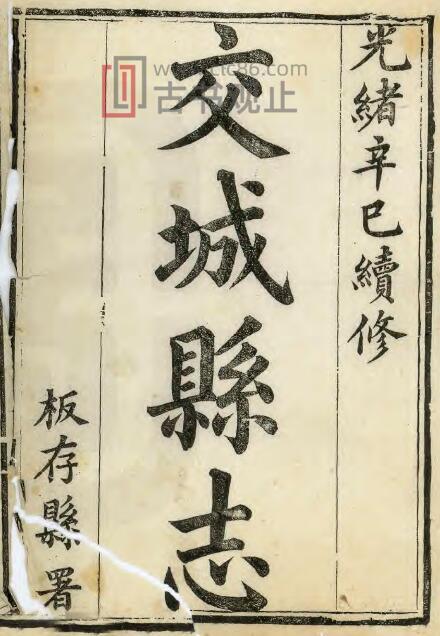 光緒辛巳續修
交城縣志
板存縣署
古书观止